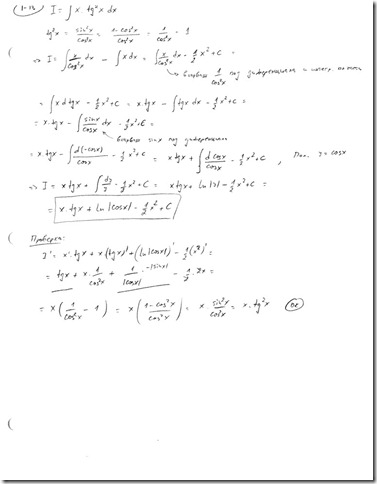 1-16 I = ∫ x · tg²x dx
tg²x = sin²x/cos²x = (1-cos²x)/cos²x = 1/cos²x - 1
⇒ I = ∫ x/cos²x dx - ∫ x dx = ∫ x/cos²x dx - 1/2 x² + C =
1/cos²x под
= ∫ x d tgx - 1/2 x² + C = x·tgx - ∫ tgx dx - 1/2 x² + C =
= x·tgx - ∫ sinx/cosx dx - 1/2 x² + C =
sinx под
= x·tgx - ∫ d(-cosx)/cosx - 1/2 x² + C = x tgx + ∫ d cosx/cosx - 1/2 x² + C , y = cosx
⇒ I = x tgx + ∫ dy/y - 1/2 x² + C = x tgx + ln|y| - 1/2 x² + C =
= x·tgx + ln|cosx| - 1/2 x² + C
Проверка:
y' = x'·tgx + x(tgx)' + (ln|cosx|)' - 1/2 (x²)' =
= tgx + x · 1/cos²x + 1/|cosx| · -|sinx| - 1/2 · 2x =
= x (1/cos²x - 1) = x ((1-cos²x)/cos²x) = x sin²x/cos²x = x·tg²x OK